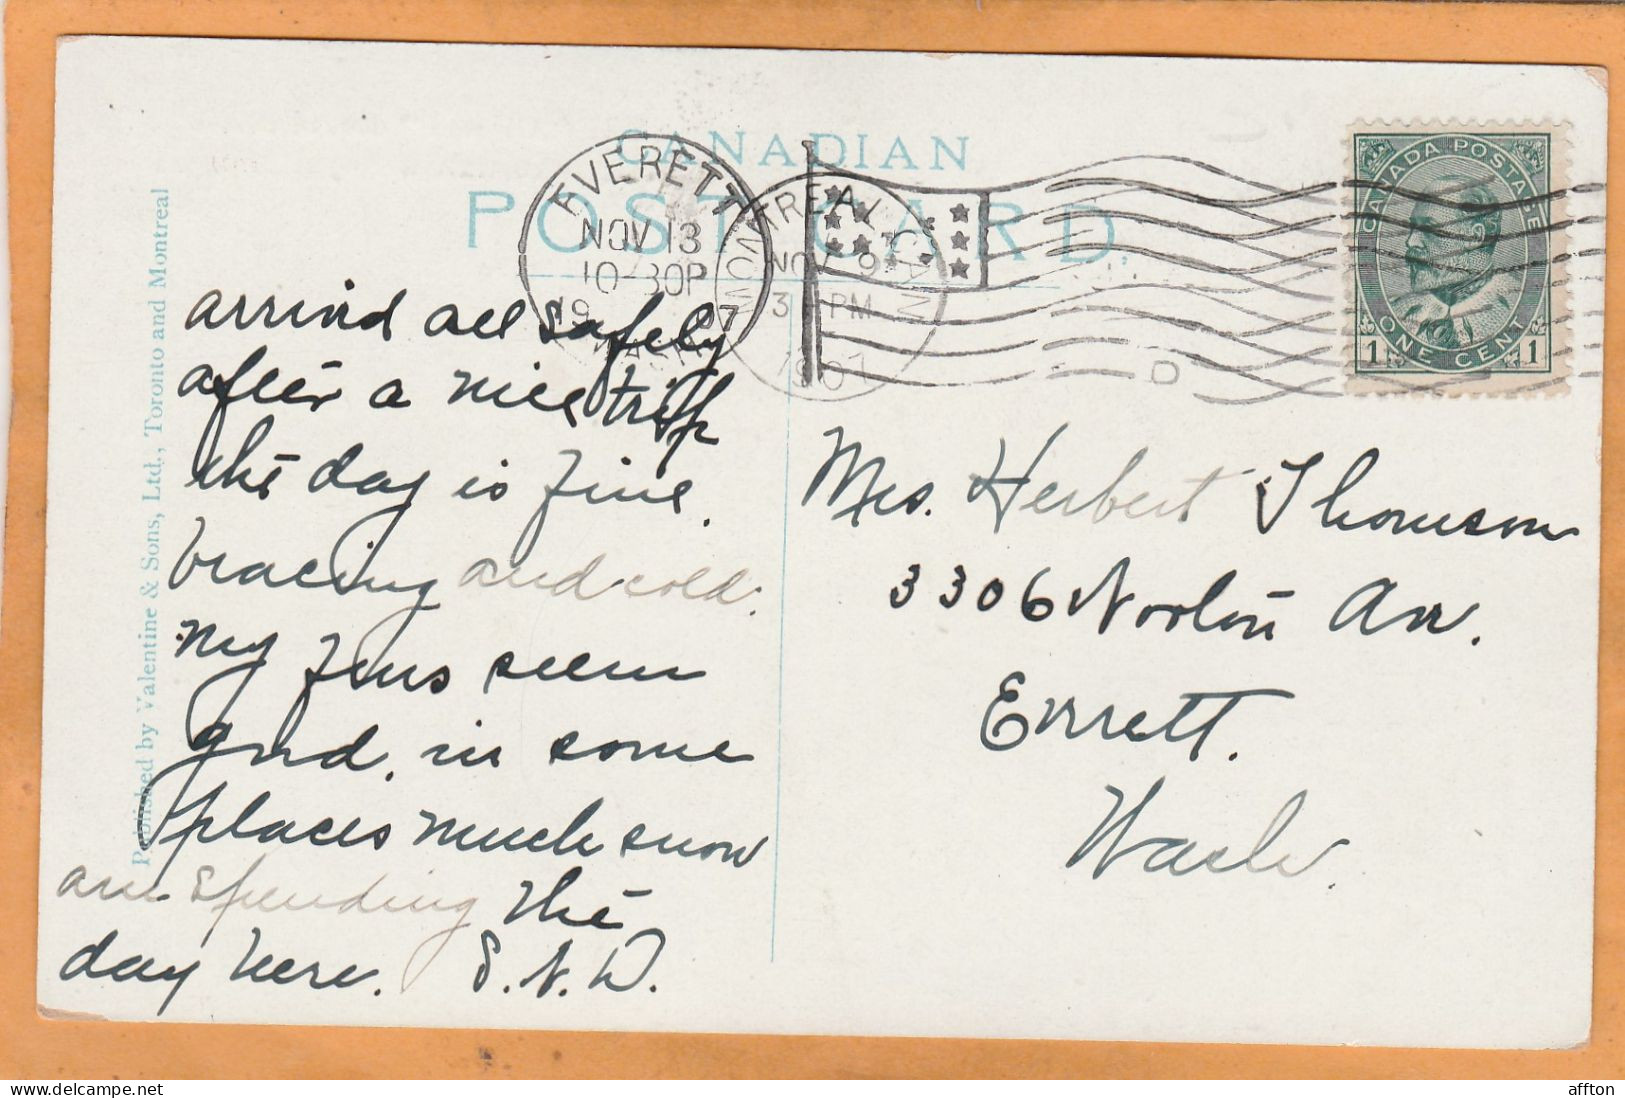 CANADIAN
POST CARD.
EVERETT
NOV 13
10-30P
1907
WASH.
MONTREAL CAN
NOV 9
3 PM
1907
D
CANADA POSTAGE
1 ONE CENT 1
Published by Valentine & Sons, Ltd., Toronto and Montreal
arrived all safely
after a nice trip
the day is fine.
bracing and cold.
My
seem
good. in some
places much snow
am spending the
day here. S.N.D.
Mrs. Herbert Thomson
3306 Norton Ave.
Everett.
Wash.
affton